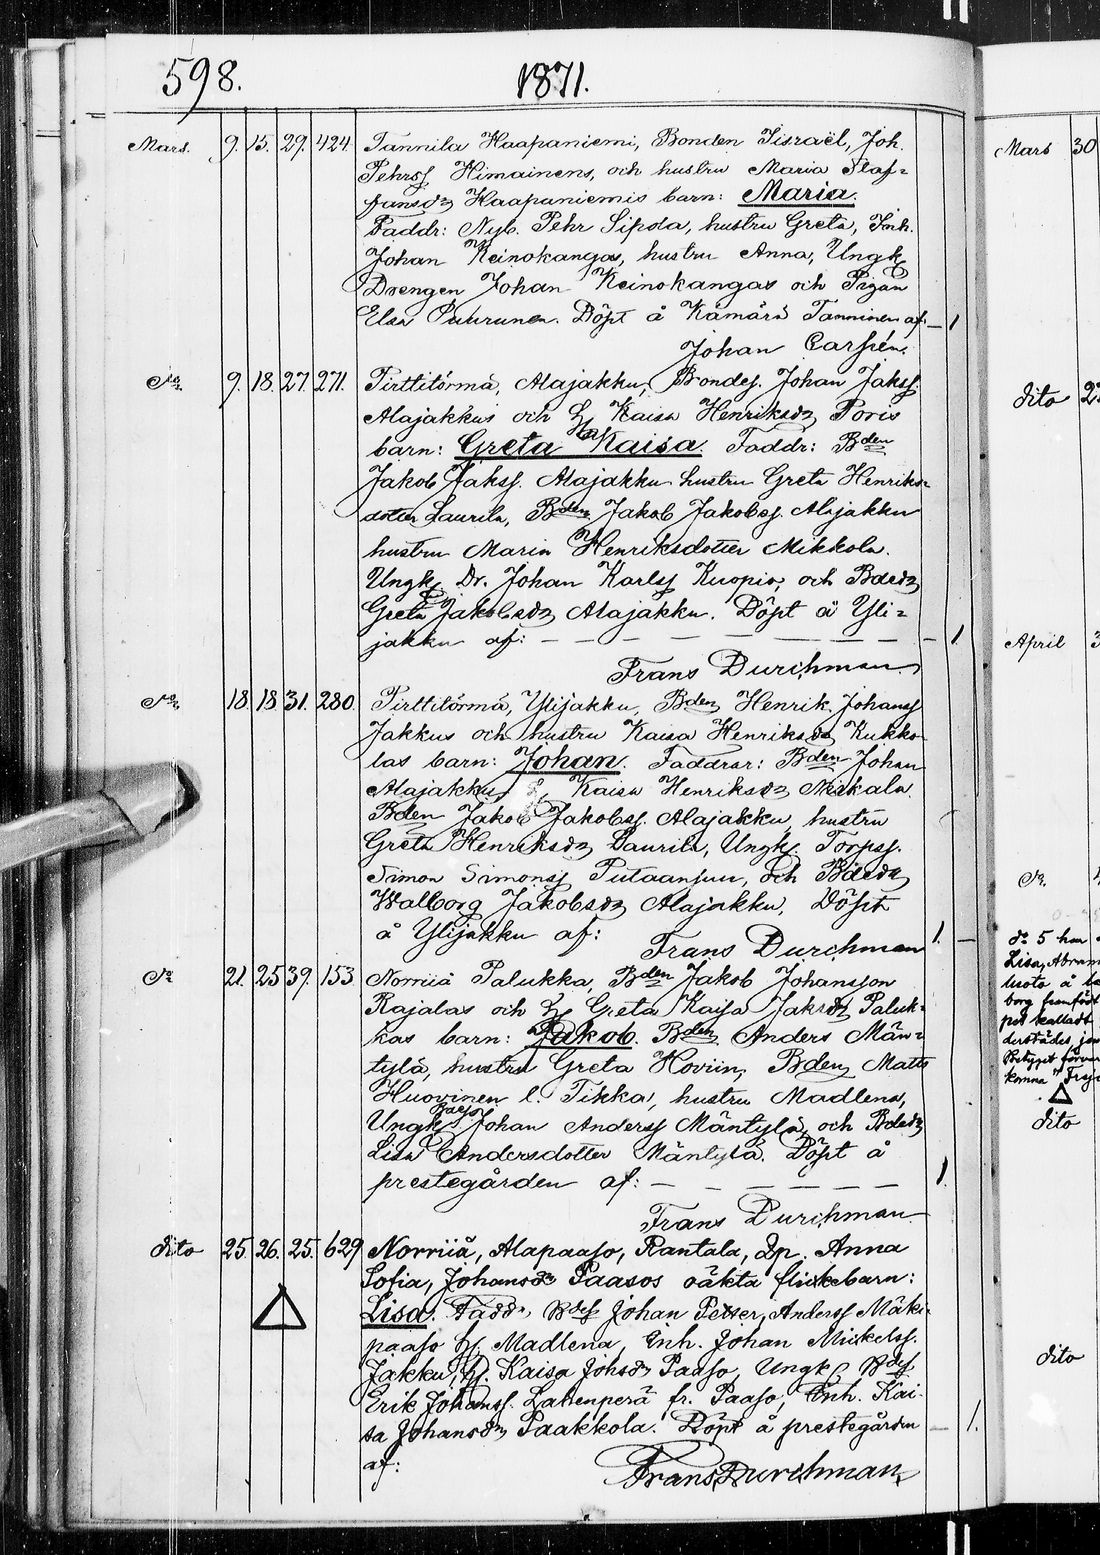 598.
1871.
Mars. 9. 15. 29. 424. Tannila Haapaniemi, Bonden Iisraël, Joh.
Pehrsf Himainens, och hustru Maria Staf-
fansdr Haapaniemis barn: Maria.
Faddr: Nyb. Pehr Sipola, hustru Greta, Inh.
Johan Keinokangas, hustru Anna, Ungk.
Drengen Johan Keinokangas och Pigan
Elsa Puurunen. Döpt å Kämärä Tanninen af — 1
Johan Carpén.
Do 9. 18. 27. 271. Pirttitörmä, Alajakku, Bondes. Johan Jaksf.
Alajakkus och H Kaisa Henriksdr Poris
barn: Greta Kaisa. Faddr: Bden
Jakob Jaksf. Alajakku hustru Greta Henriks-
dotter Laurila, Bden Jakob Jakobsf. Alajakku
hustru Maria Henriksdotter Mikkola.
Ungk. Dr. Johan Karlsf Kuopio, och Bdedr
Greta Jakobsdr Alajakku. Döpt å Yli-
jakku af: — — — — — — — — 1.
Frans Durchman
Do 18. 18. 31. 280. Pirttitörmä, Ylijakku, Bden Henrik Johansf
Jakkus och hustru Kaisa Henriksdr Kukko-
las barn: Johan. Faddrar: Bden Johan
Alajakku, Kaisa Henriksdr
Bden Jakob Jakobsf. Alajakku, hustru
Greta Henriksdr Laurila, Ungk. Torpsf.
Simon Simonsf Putaansuu, och Bdedr
Walborg Jakobsdr Alajakku, Döpt
å Ylijakku af: 1. —
Frans Durchman
Do 21. 25 39. 153 Norriiå Palukka, Bden Jakob Johansson
Rajalas och H Greta Kaisa Jaksdr Paluk-
kas barn: Jakob. Bden Anders Män-
tylä, hustru Greta Hoviin, Bden Matts
Huovinen l. Tikka, hustru Madlena,
Ungk Bdes Johan Andersf Mäntylä, och Bdedr
Lisa Andersdotter Mäntylä. Döpt å
prestegården af: — — — — — — 1.
Frans Durchman
dito 25. 26. 25. 629 Norriiå, Alapaaso, Rantala, Anna
Sofia, Johansdr Paasos oäkta flickebarn:
Lisa. Faddr, Bdesf Johan Petter, Andersf Mäki-
paaso H. Madlena, Inh. Johan Mickelsf.
Jakku, H. Kaisa Johsdr Paaso, Ungk, Bdesf
Erik Johansf. Lahenperä fr. Paaso, Inh. Kai-
sa Johansdr Paakkola. Döpt å prestegården — 1.
af:
Frans Durchman
Mars 30
dito
April 3
do 5
Lisa, Abram
dito
dito